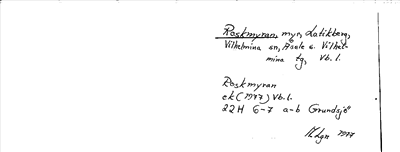 Roskmyran, myr, Latikberg,
Vilhelmina sn, Åsele s. Vilhel-
mina tg, Vb. l.
Roskmyran
ek (1977) Vb. l.
22H 6-7 a-b Grundsjö
1977